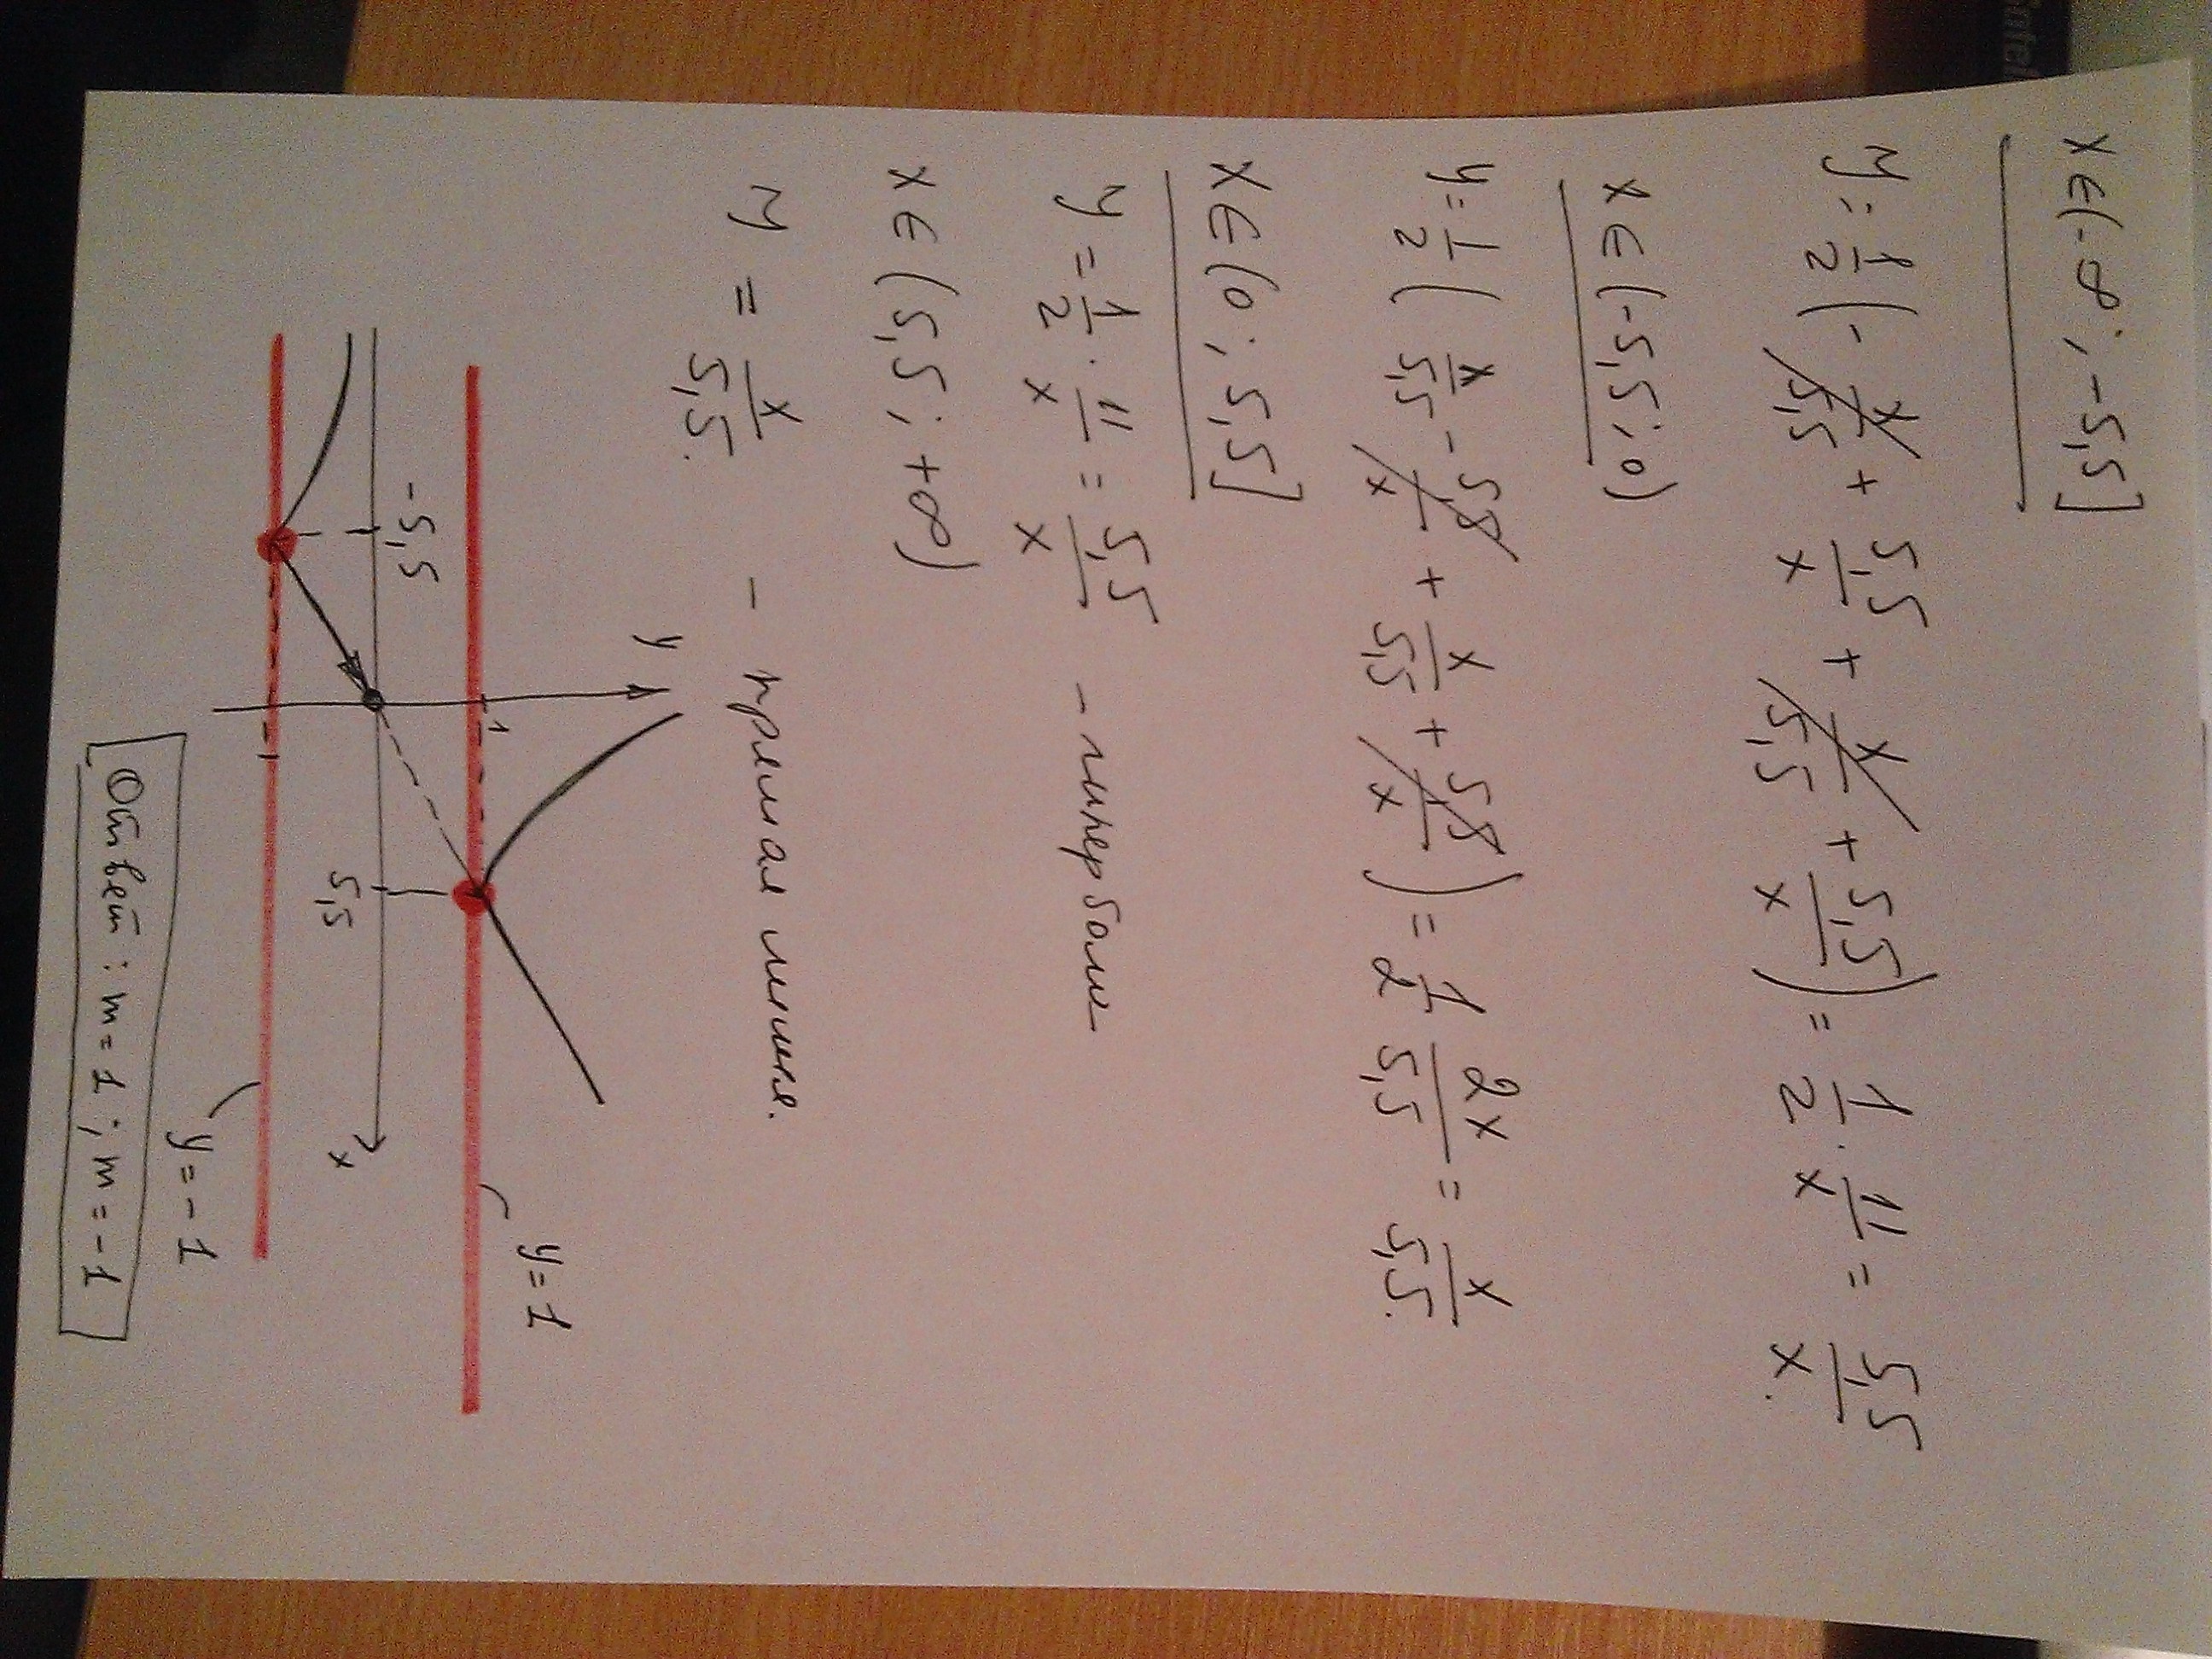 x ∈ (-∞; -5,5]
y = 1/2 (-x/5,5 + 5,5/x + x/5,5 + 5,5/x) = 1/2 · 11/x = 5,5/x.
x ∈ (-5,5; 0)
y = 1/2 (x/5,5 - 5,5/x + x/5,5 + 5,5/x) = 1/2 2x/5,5 = x/5,5.
x ∈ (0; 5,5]
y = 1/2 · 11/x = 5,5/x - гипербола
x ∈ (5,5; +∞)
y = x/5,5. - прямая линия.
y
1
y=1
-5,5
5,5
x
-1
y=-1
Ответ: m=1; m=-1